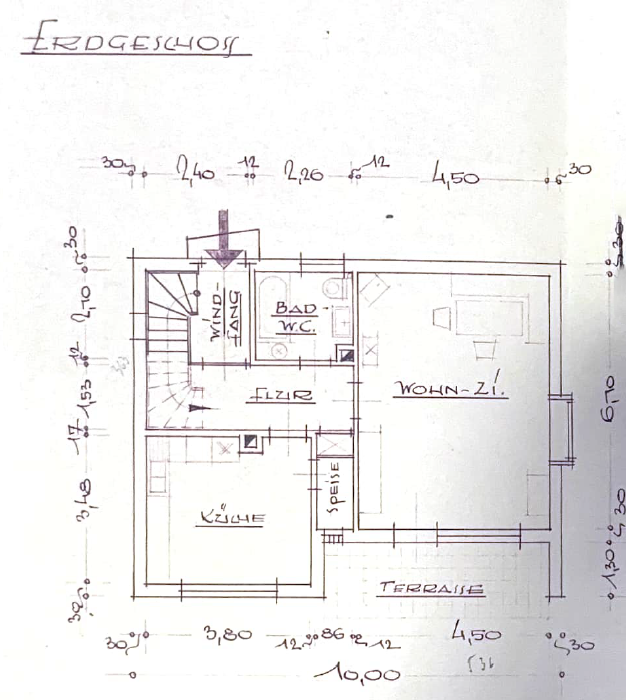 ERDGESCHOSS
30 2,40 12 2,26 12 4,50 30
30
2,10
12
1,53
17
3,48
30
WIND-
FANG
BAD-
W.C.
FLUR
WOHN-ZI.
KÜCHE
SPEISE
TERRASSE
6,70
30
1,30
30 3,80 12 86 12 4,50 30
10,00